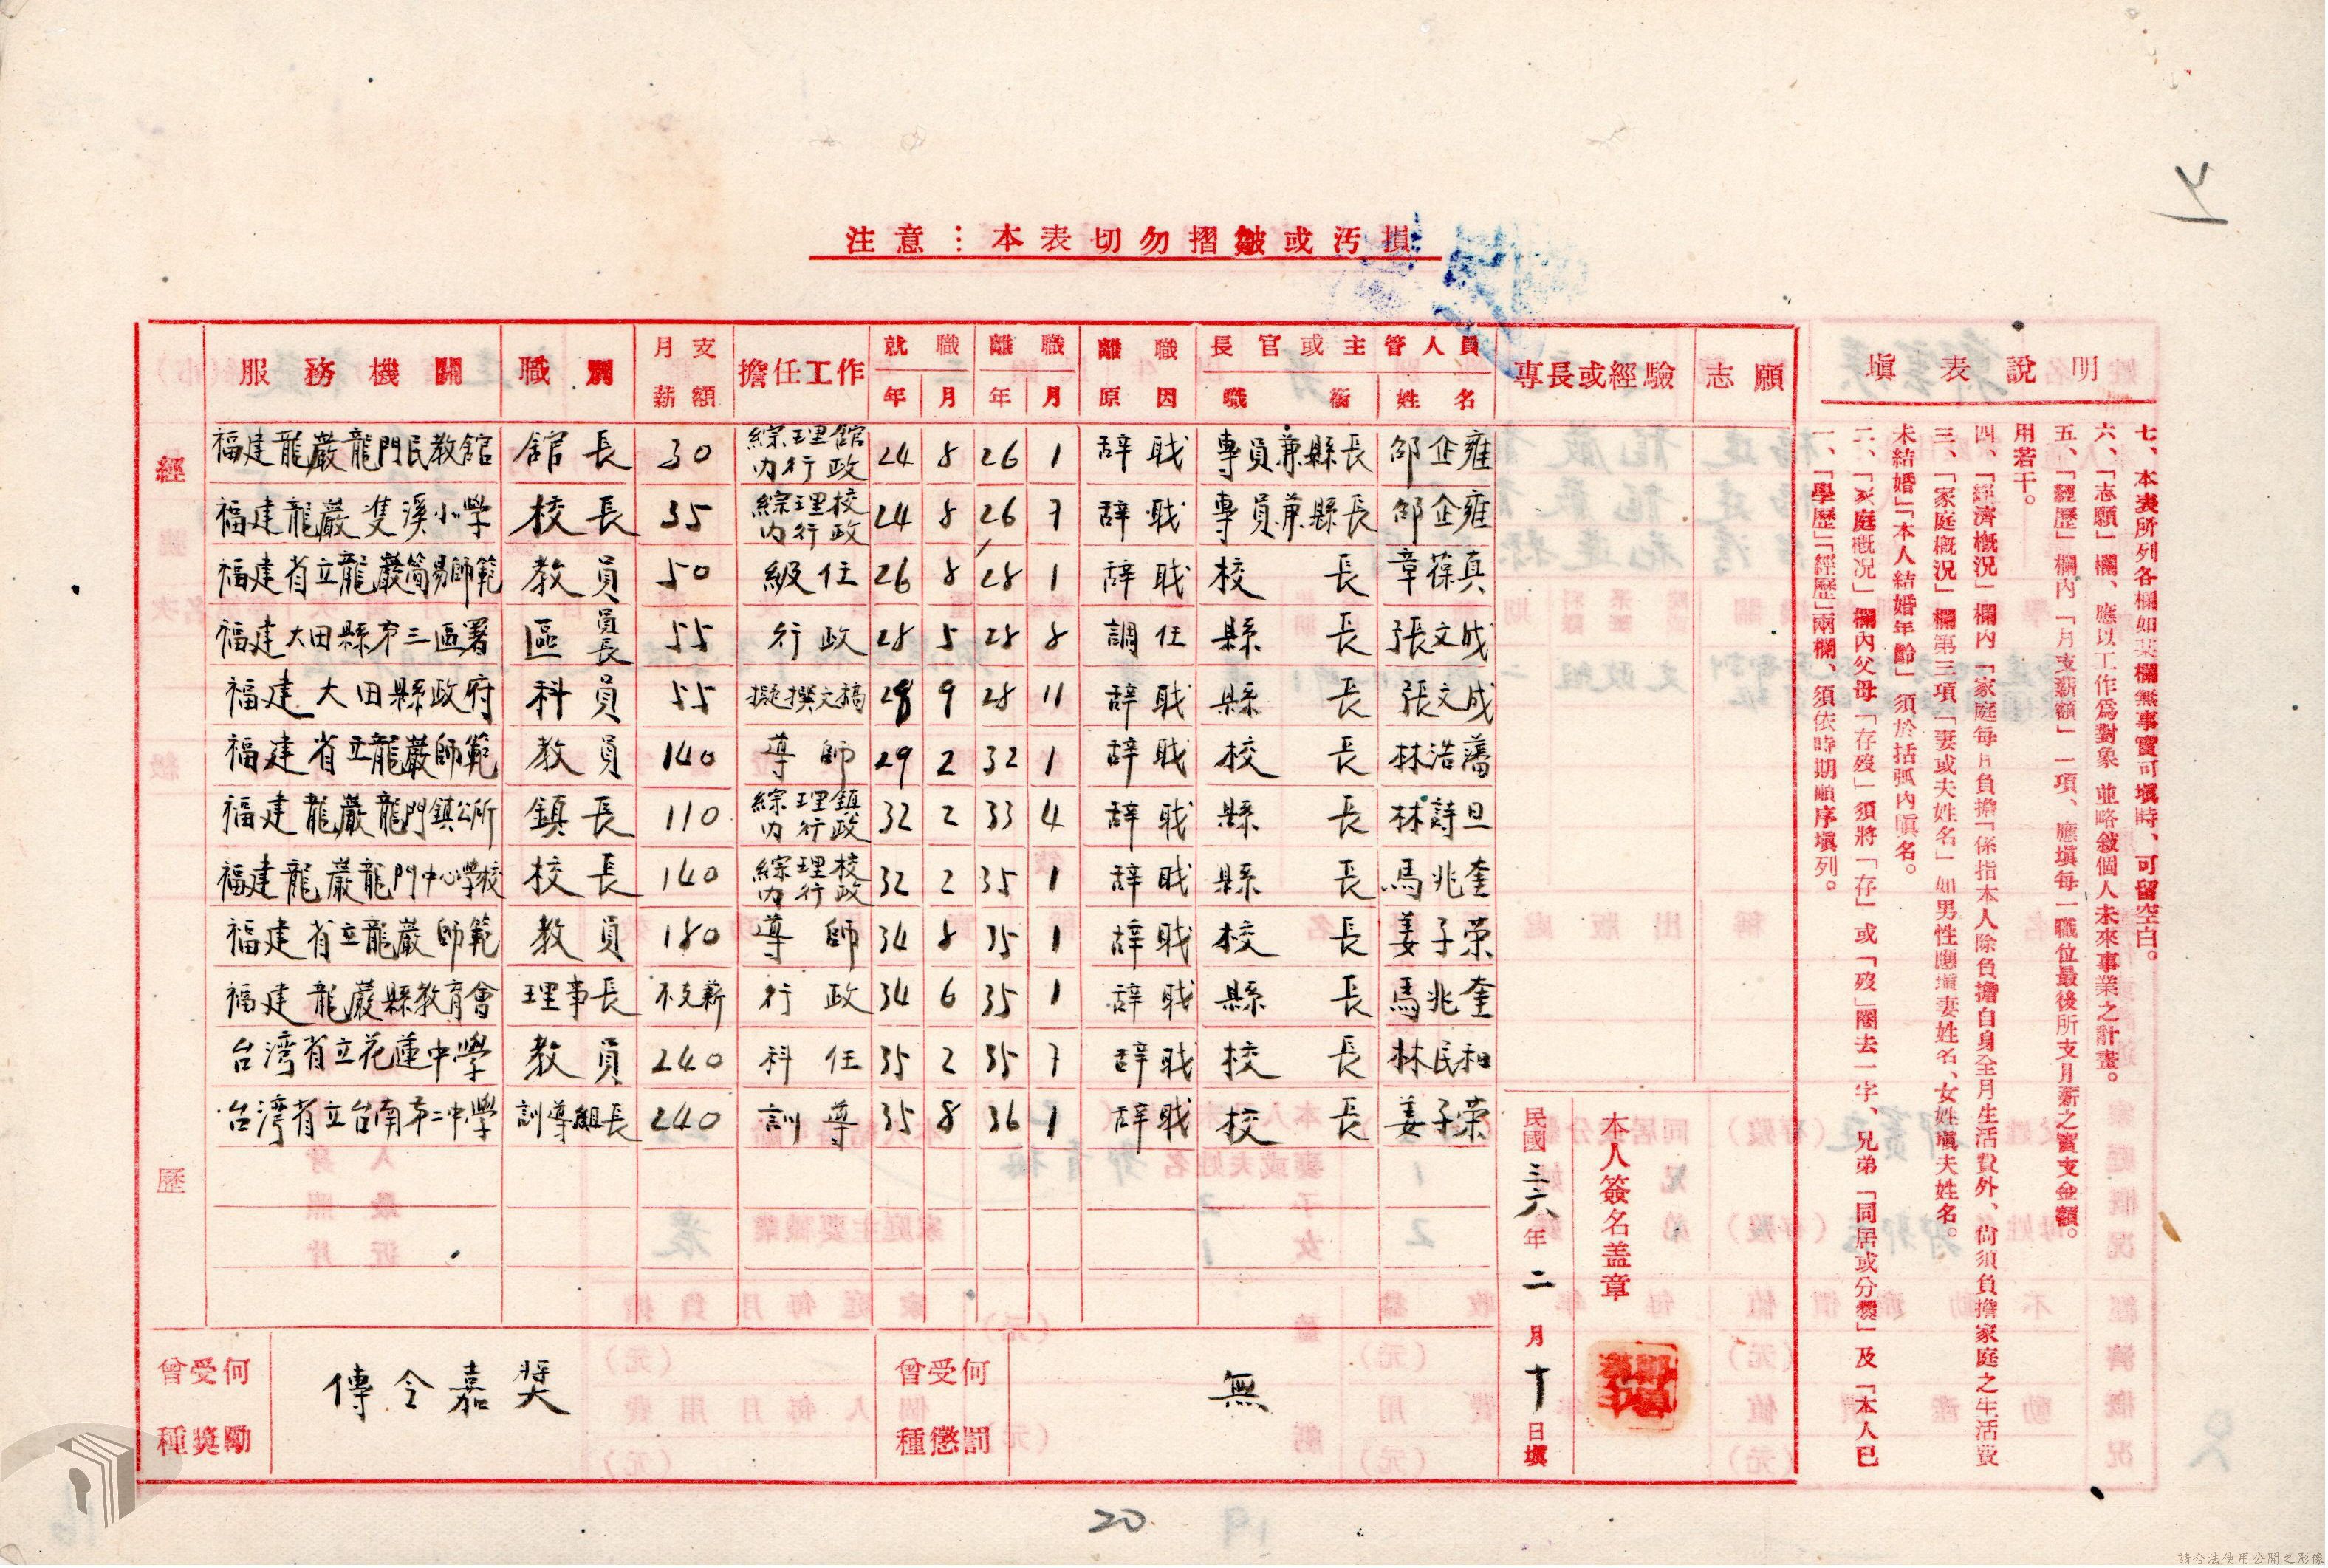 注意：本表切勿摺皺或汚損
服務機關 職別 月支薪額 擔任工作 就職年月 離職年月 離職原因 長官或主管人員職銜姓名 專長或經驗 志願
經歷
福建龍巖龍門民教舘 舘長 30 綜理舘內行政 24 8 26 1 辞职 專員兼縣長 邵企雍
福建龍巖隻溪小學 校長 35 綜理校內行政 24 8 26 7 辞职 專員兼縣長 邵企雍
福建省立龍巖簡易師範 教員 50 級任 26 8 28 1 辞职 校長 章葆真
福建大田縣第三區署 區員長 55 行政 28 5 28 8 調任 縣長 張文成
福建大田縣政府 科員 55 擬撰文稿 28 9 28 11 辞职 縣長 張文成
福建省立龍巖師範 教員 140 導師 29 2 32 1 辞职 校長 林浩藩
福建龍巖龍門鎮公所 鎮長 110 綜理鎮內行政 32 2 33 4 辞职 縣長 林詩旦
福建龍巖龍門中心學校 校長 140 綜理校內行政 32 2 35 1 辞职 縣長 馬兆奎
福建省立龍巖師範 教員 180 導師 34 8 35 1 辞职 校長 姜子荣
福建龍巖縣教育會 理事長 不支薪 行政 34 6 35 1 辞职 縣長 馬兆奎
台湾省立花蓮中學 教員 240 科任 35 2 35 7 辞职 校長 林民和
台湾省立台南第二中學 訓導組長 240 訓導 35 8 36 1 辞职 校長 姜子荣
曾受何種獎勵 傳令嘉奖
曾受何種懲罰 無
本人簽名盖章
民國三六年二月十日塡
塡表說明
一、「學歷」「經歷」兩欄、須依時期順序塡列。
二、「家庭概况」欄內父母「存歿」須將「存」或「歿」圈去一字、兄弟「同居或分爨」及「本人已
未結婚」「本人結婚年齡」須於括弧內塡名。
三、「家庭概況」欄第三項「妻或夫姓名」如男性應塡妻姓名、女姓塡夫姓名。
四、「經濟概況」欄內「家庭每月負擔「係指本人除負擔自身全月生活費外、尙須負擔家庭之生活費
用若干。
五、「經歷」欄內「月支薪額」一項、應塡每一職位最後所支月薪之實支金額。
六、「志願」欄、應以工作爲對象 並略敍個人未來事業之計畫。
七、本表所列各欄如某欄無事實可塡時、可留空白。
20
請合法使用公開之影像